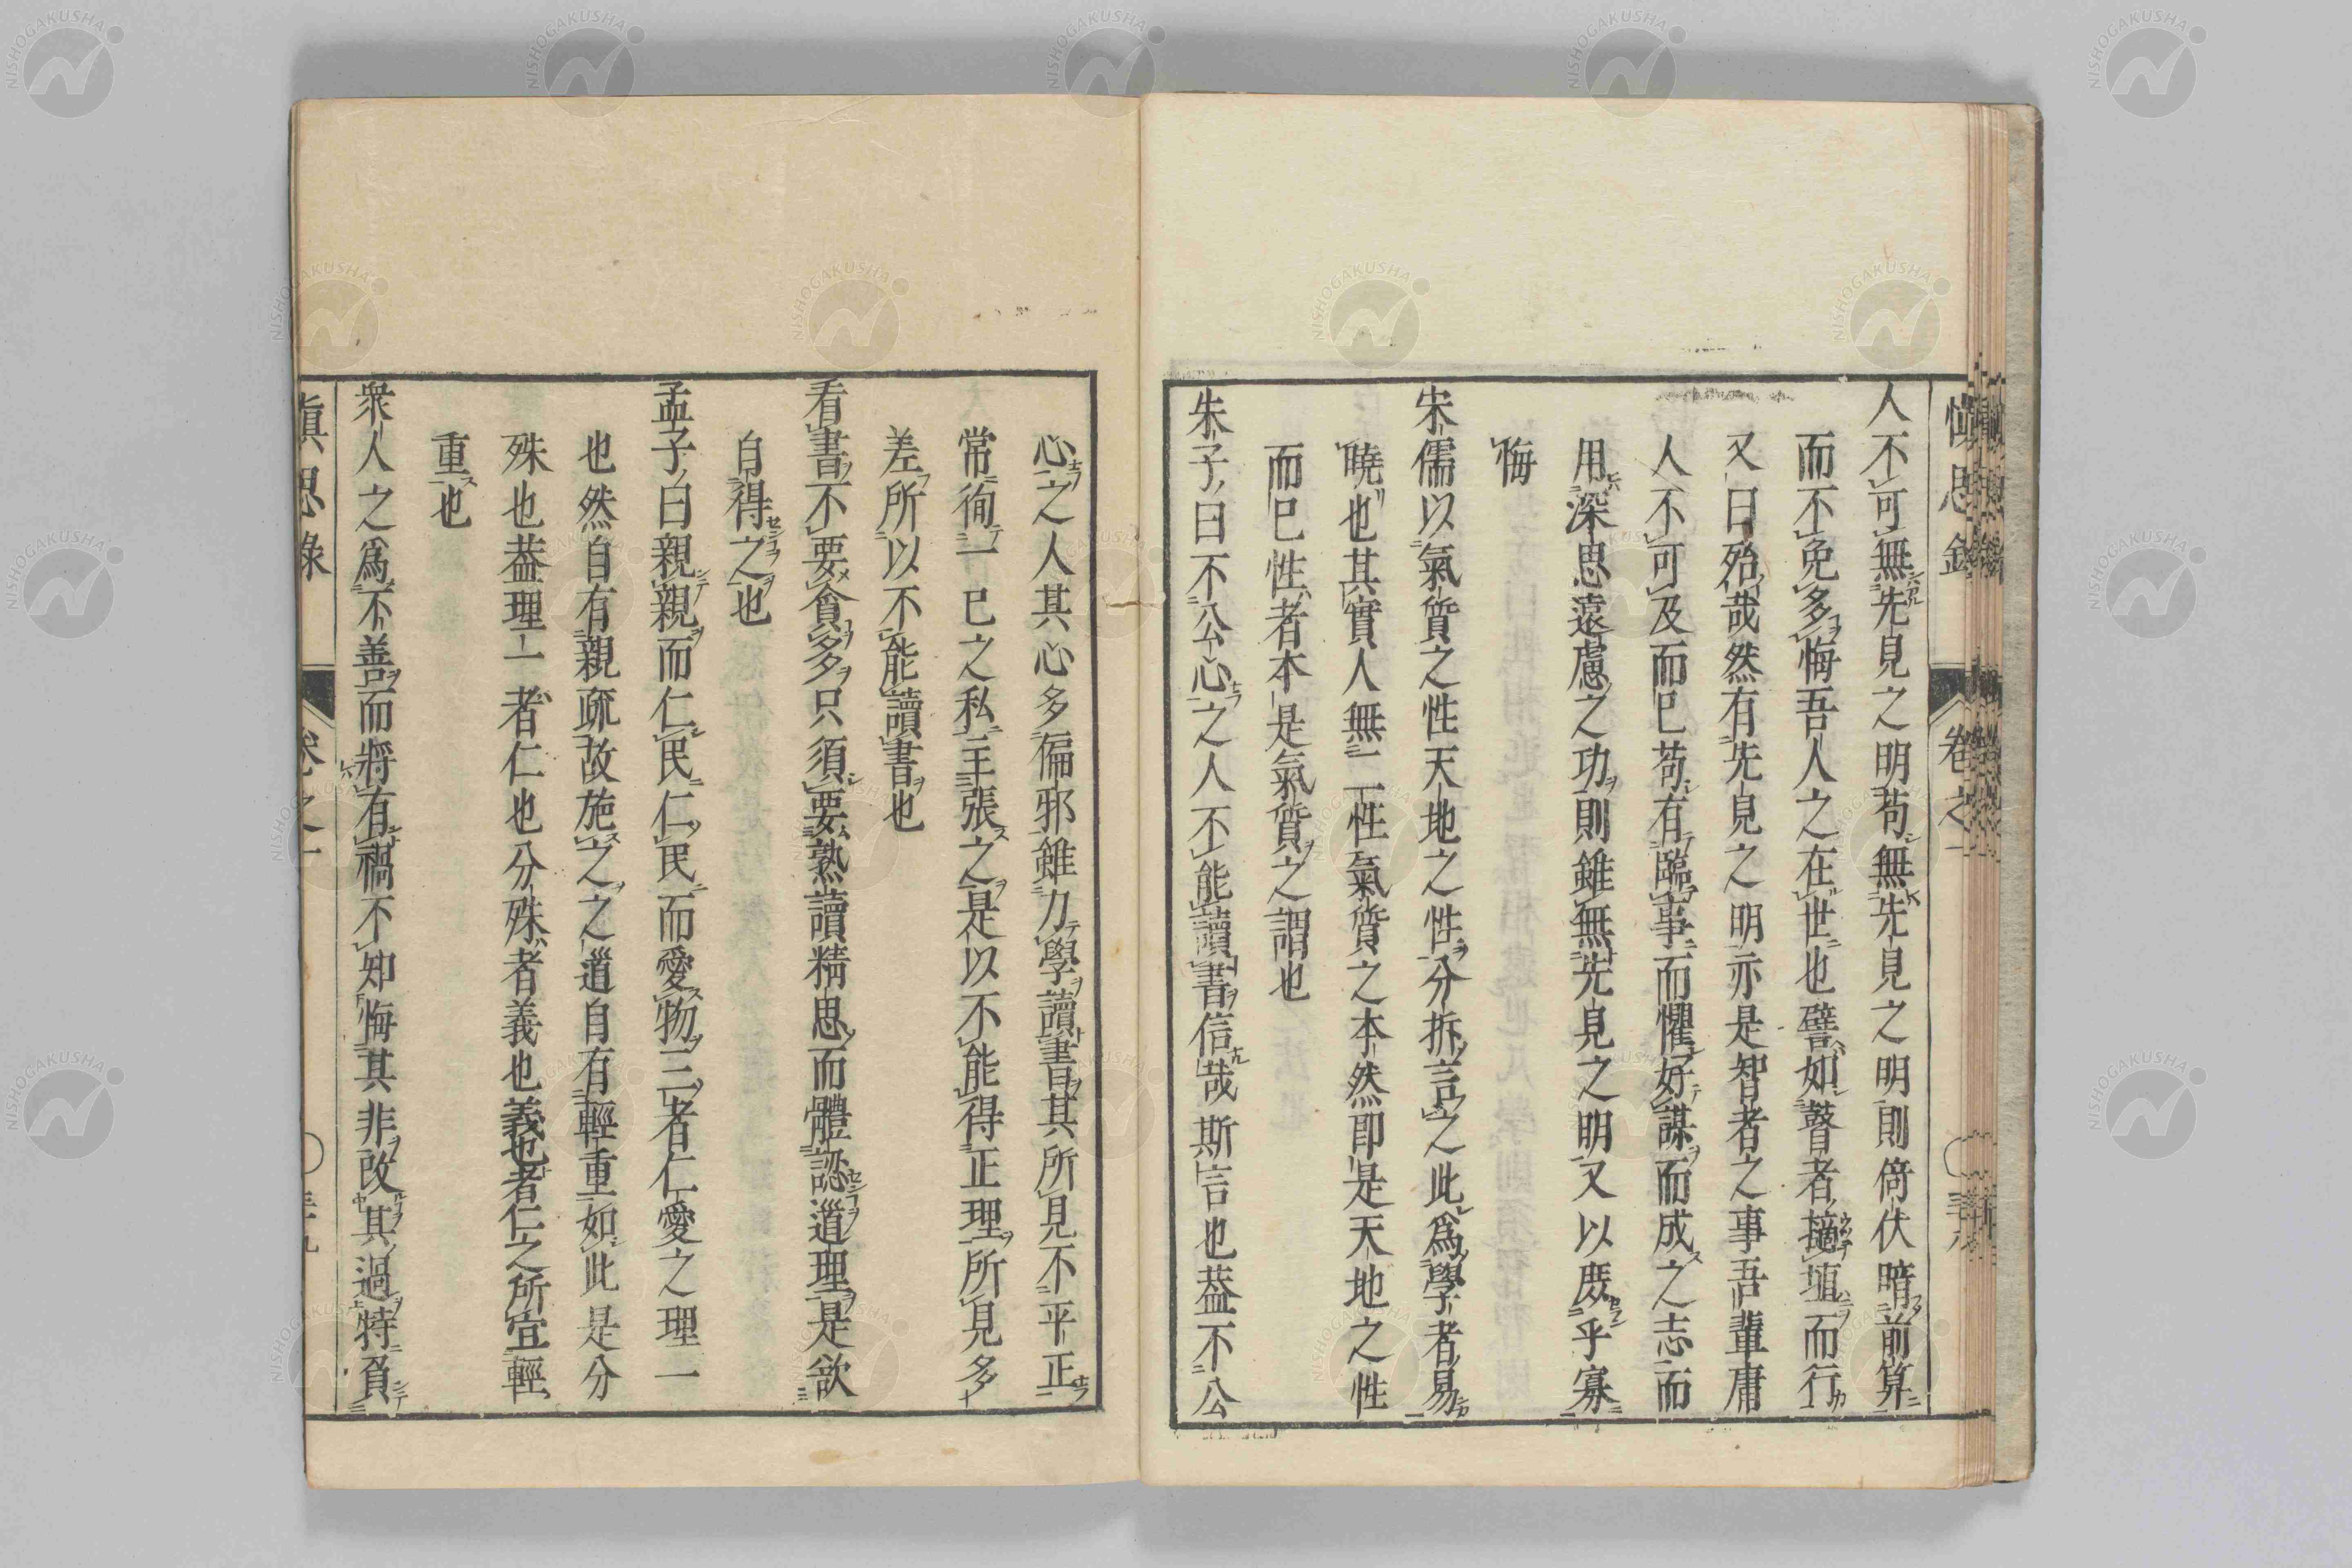 人不可無先見之明苟無先見之明則倚伏暗前算
而不免多悔吾人之在世也譬如瞽者擿埴而行
又曰殆哉然有先見之明亦是智者之事吾輩庸
人不可及而已苟有臨事而懼好謀而成之志而
用深思遠慮之功則雖無先見之明又以庶乎寡
悔
宋儒以氣質之性天地之性分拆言之此爲學者易
曉也其實人無二性氣質之本然即是天地之性
而已性者本是氣質之謂也
朱子曰不公心之人不能讀書信哉斯言也葢不公
心之人其心多偏邪雖力學讀書其所見不平正
常徇一己之私主張之是以不能得正理所見多
差所以不能讀書也
看書不要貪多只須要熟讀精思而體認道理是欲
自得之也
孟子曰親親而仁民仁民而愛物三者仁愛之理一
也然自有親疏故施之之道自有輕重如此是分
殊也葢理一者仁也分殊者義也義也者仁之所宜輕
重也
衆人之爲不善而將有禍不知悔其非改其過特負
愼思錄
卷之一